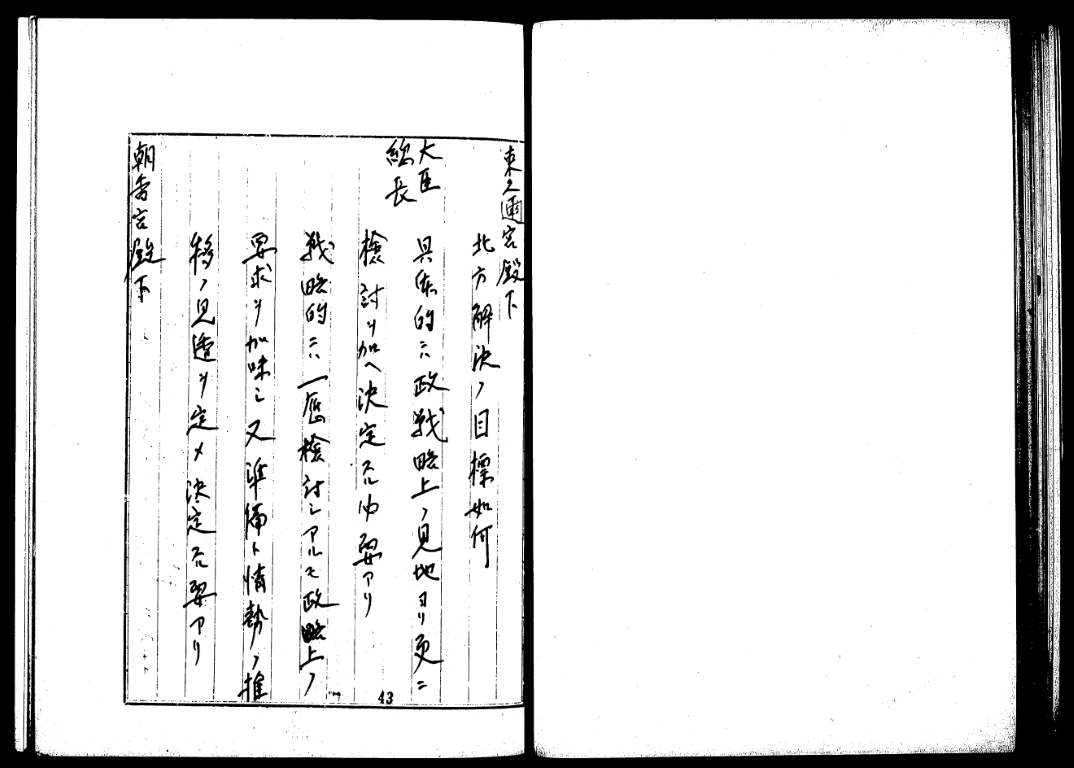 東久邇宮殿下
北方解決ノ目標如何
大臣
総長
具体的ニハ政戦略上ノ見地ヨリ更ニ
検討ヲ加ヘ決定スルヲ要アリ
戦略的ニハ一応検討シアルモ政略上ノ
要求ヲ加味シ又準備ト情勢ノ推
移ノ見透ヲ定メ決定スル要アリ
朝香宮殿下
43